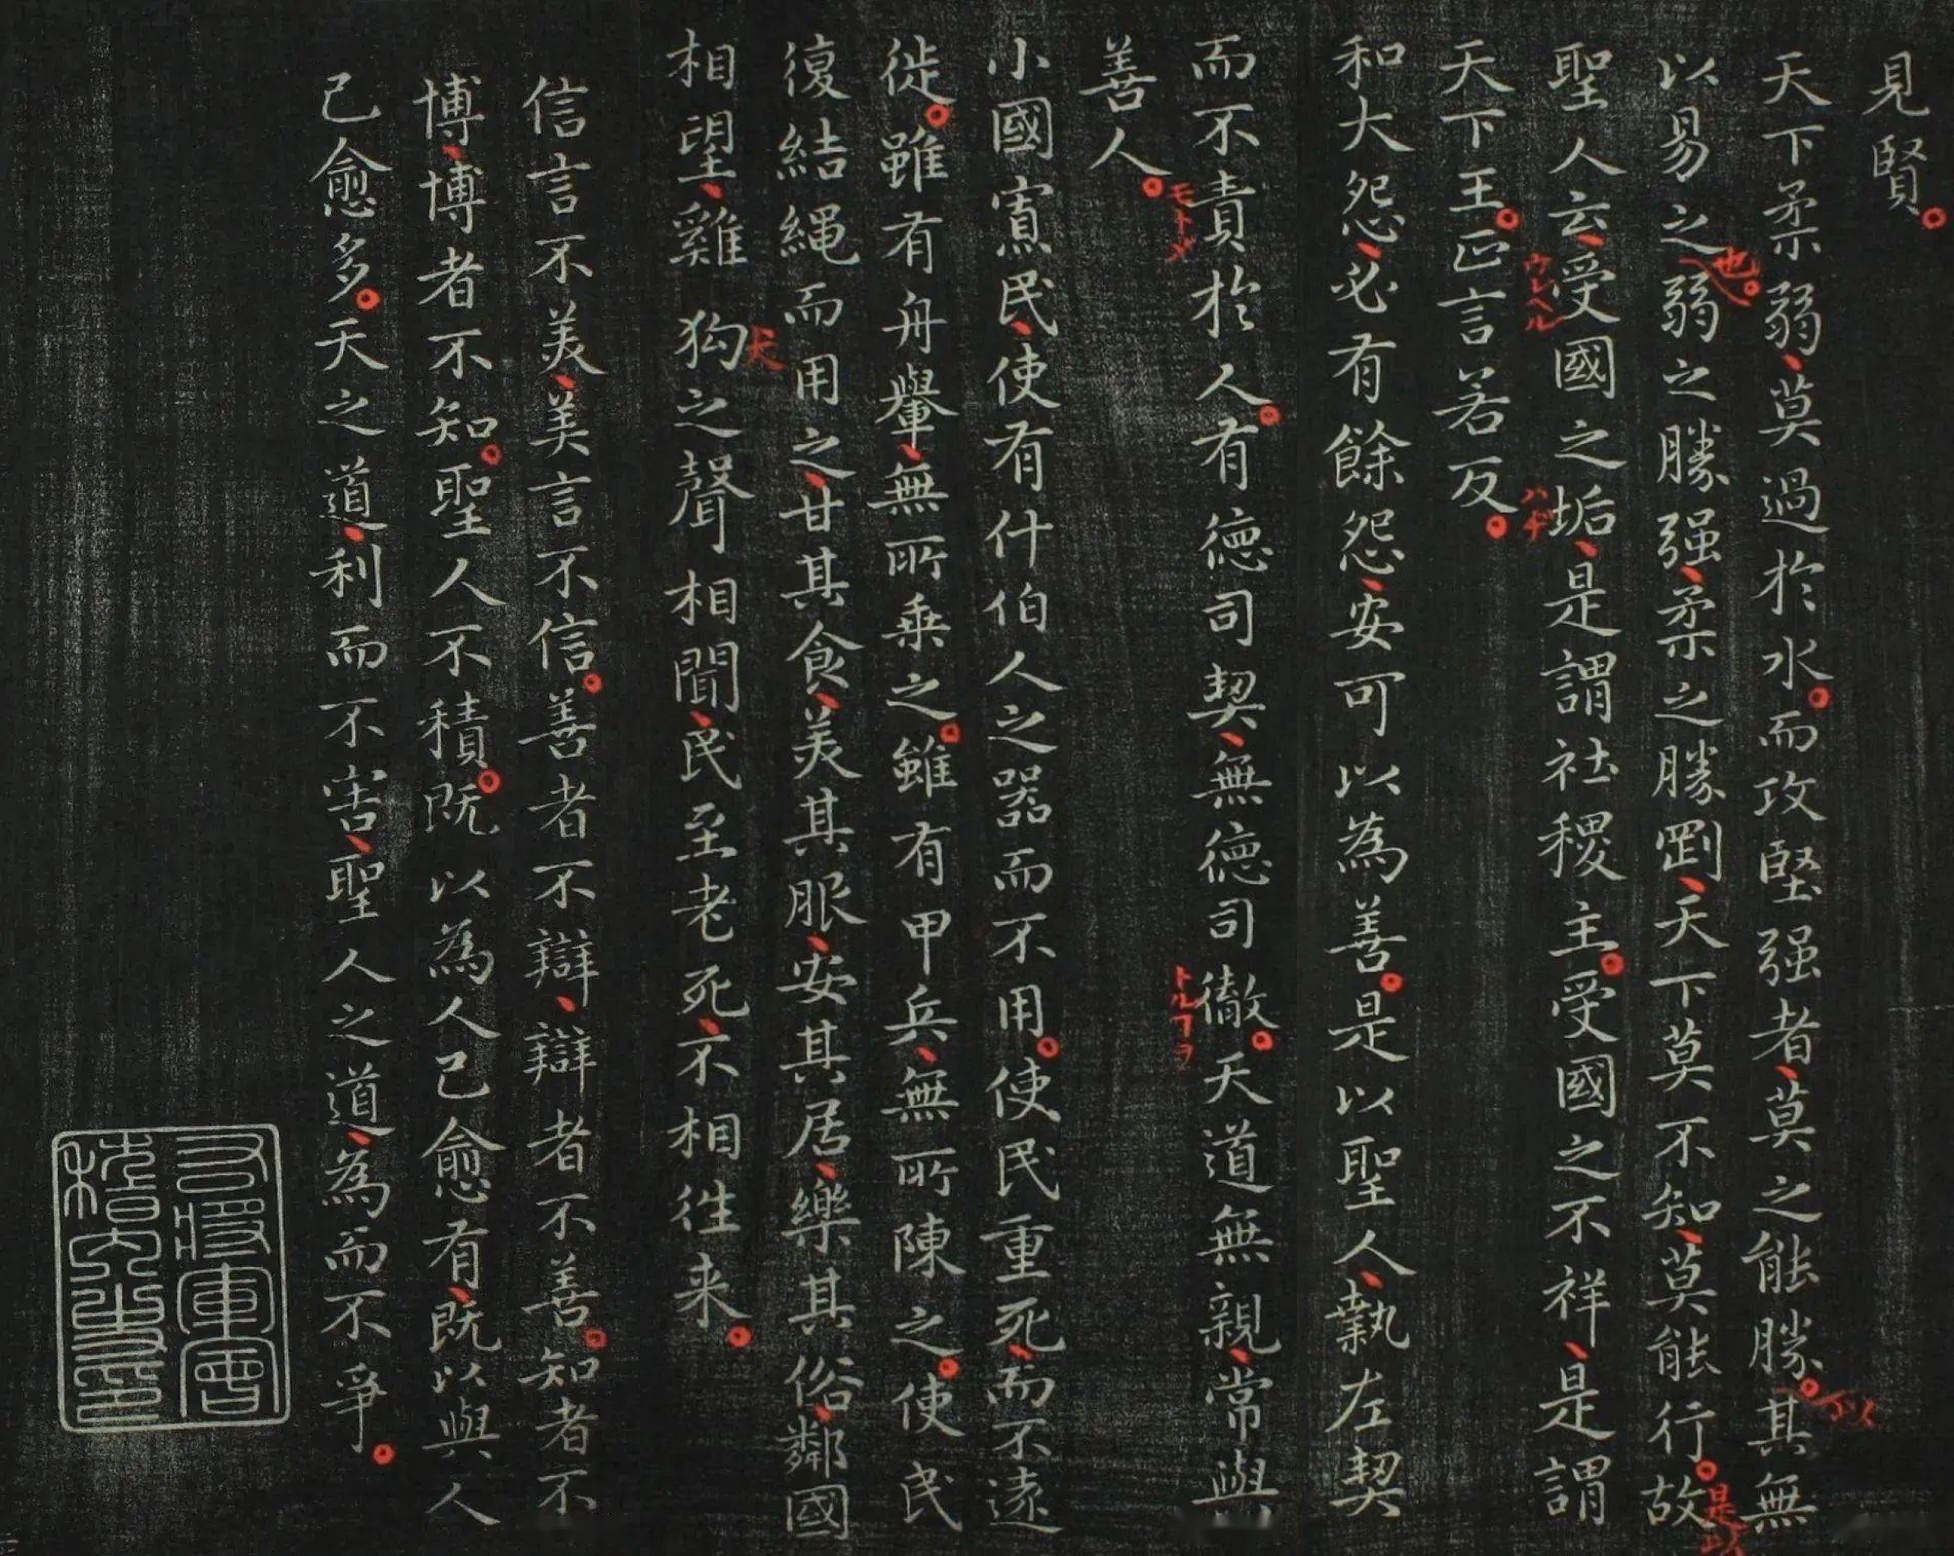 見賢。
天下柔弱、莫過於水。而攻堅强者、莫之能勝。其無
以易之弱之勝强、柔之勝剛、天下莫不知、莫能行。故
也。
是以
聖人云、受國之垢、是謂社稷主。受國之不祥、是謂
ハヂ
天下王。正言若反。
和大怨、必有餘怨、安可以為善。是以聖人、執左契
而不責於人。有德司契、無德司徹。天道無親、常與
モトメ
善人。
小國寡民、使有什伯人之器而不用。使民重死、而不遠
徙。雖有舟轝、無所乗之。雖有甲兵、無所陳之。使民
復結縄而用之、甘其食、美其服、安其居、樂其俗、鄰國
相望、雞狗之聲相聞、民至老死、不相徃来。
犬
信言不美、美言不信。善者不辯、辯者不善。知者不
博、博者不知。聖人不積。既以為人己愈有、既以與人
己愈多。天之道、利而不害、聖人之道、為而不爭。
右將軍會
稽内史印